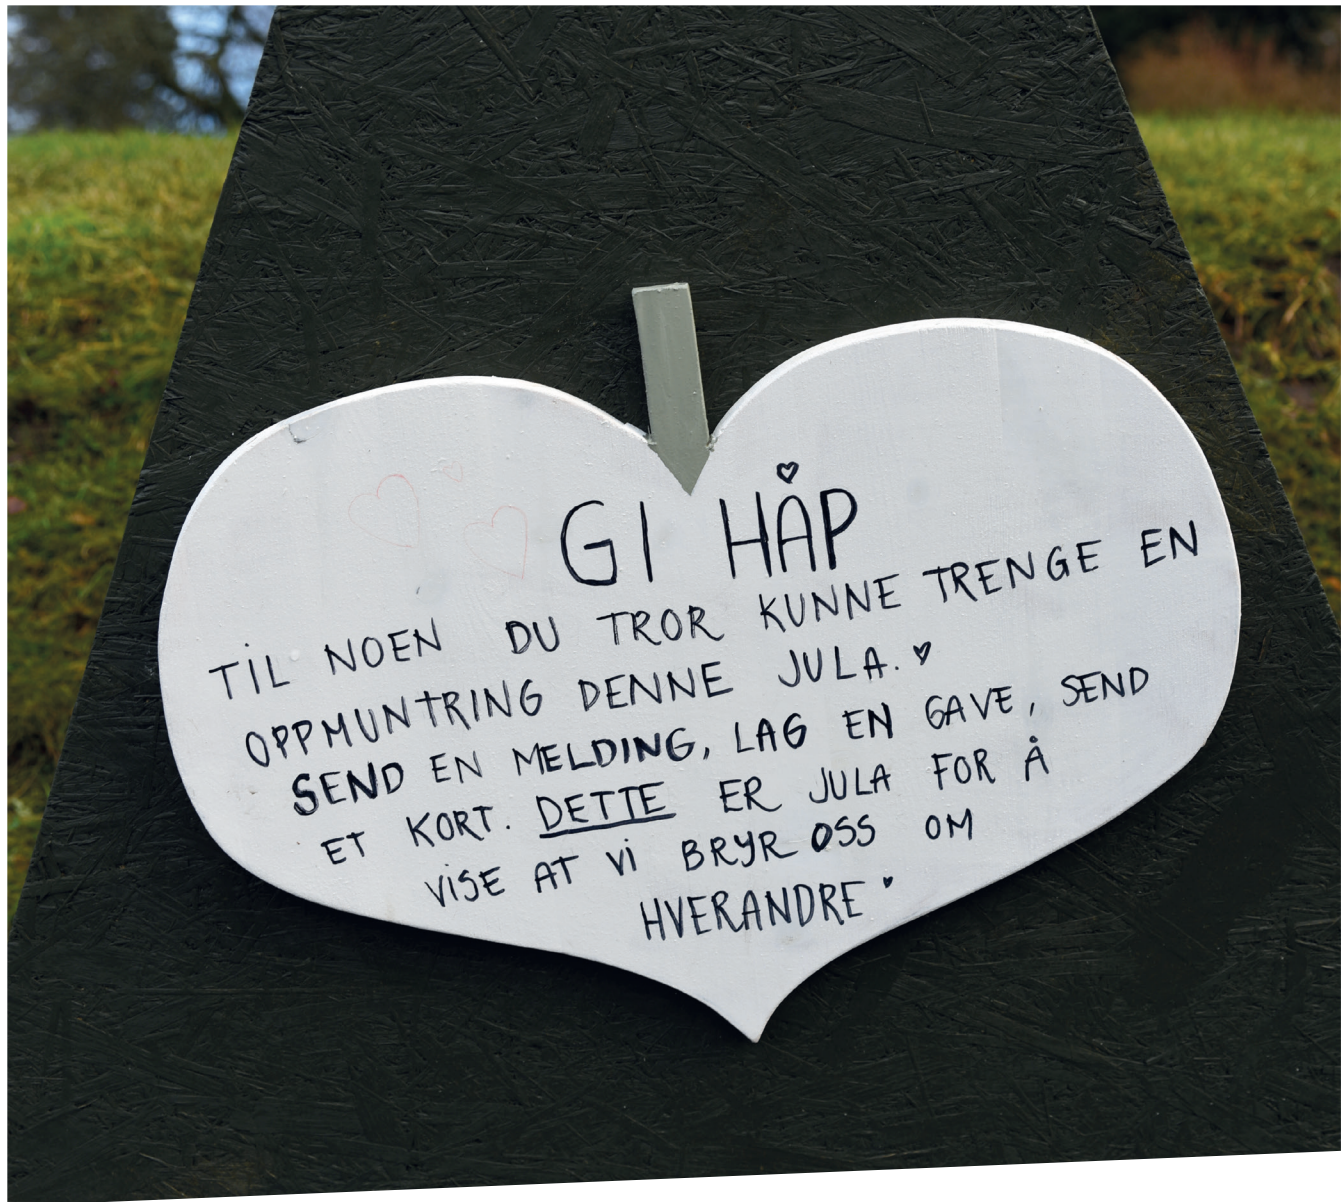 GI HÅP
TIL NOEN DU TROR KUNNE TRENGE EN
OPPMUNTRING DENNE JULA. ♥
SEND EN MELDING, LAG EN GAVE, SEND
ET KORT. DETTE ER JULA FOR Å
VISE AT VI BRYR OSS OM
HVERANDRE ♥